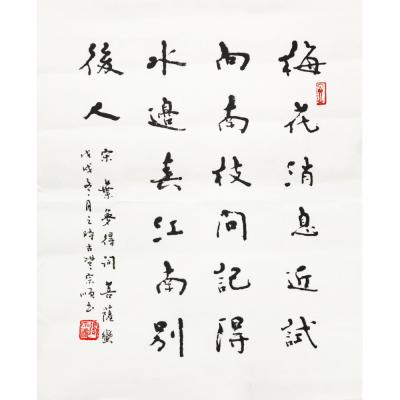 梅花消息近試
向南枝問記得
水邊春江南別
後人
宋葉夢得詞菩薩蠻
戊戌冬月之時古宗順書